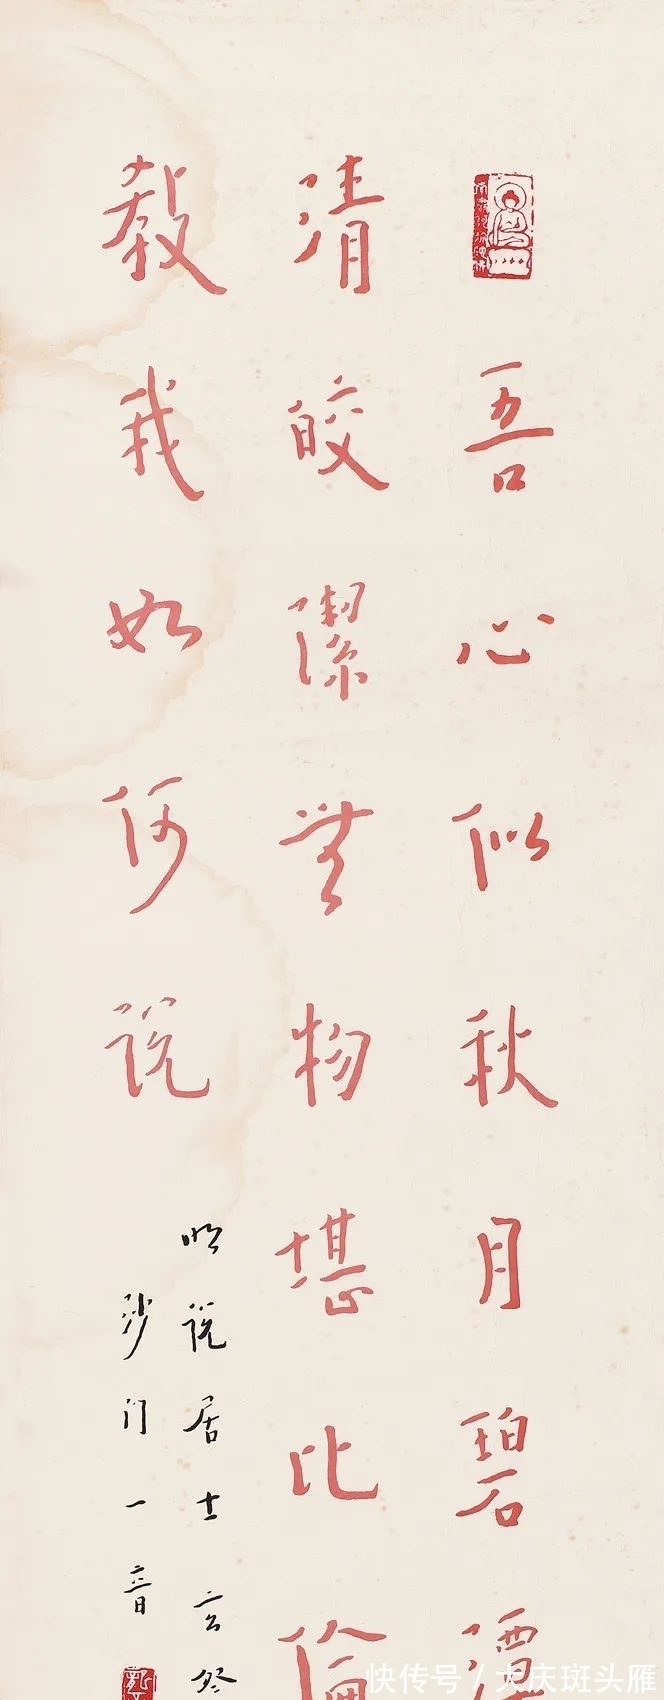 吾心似秋月碧潭
清皎潔無物堪比倫
教我如何說
明說居士玄鑒
沙门一音
快传号/大庆斑头雁